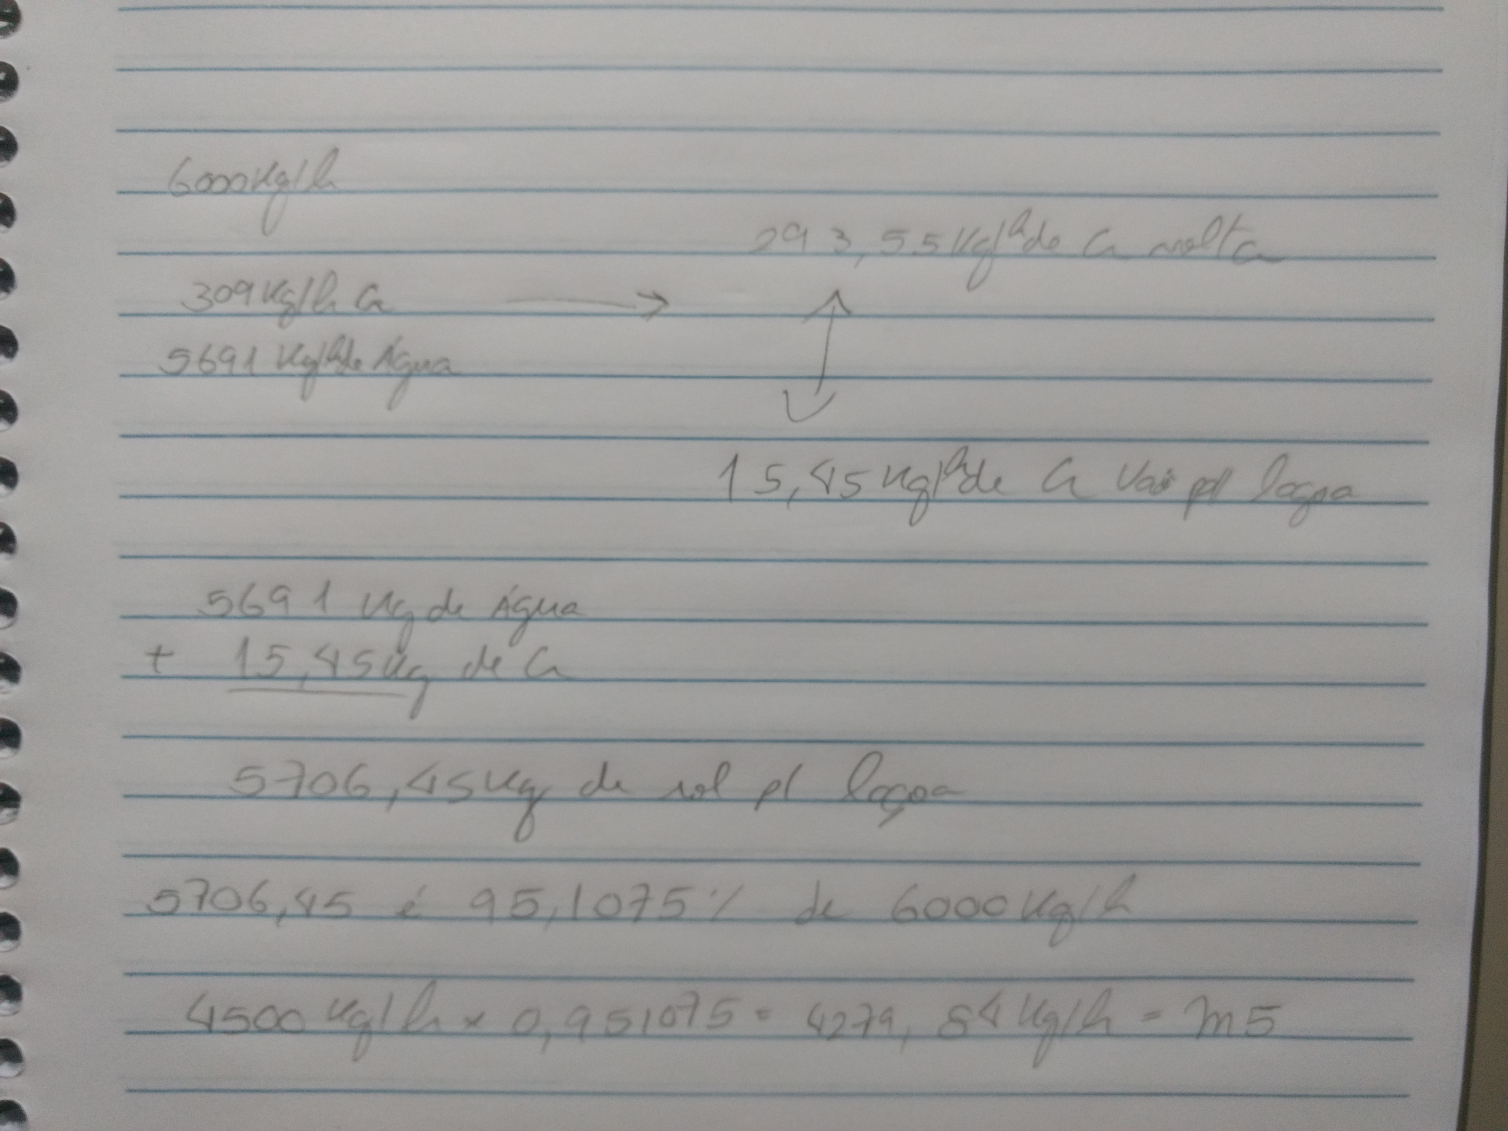 6000 Kg/h
293,55 Kg/h de Cr volta
309 Kg/h Cr
5691 Kg/h de Água
15,45 Kg/h de Cr vai p/ lagoa
5691 Kg de Água
+ 15,45 Kg de Cr
5706,45 Kg de sol p/ lagoa
5706,45 é 95,1075% de 6000 Kg/h
4500 Kg/h × 0,951075 = 4279,84 Kg/h = m5